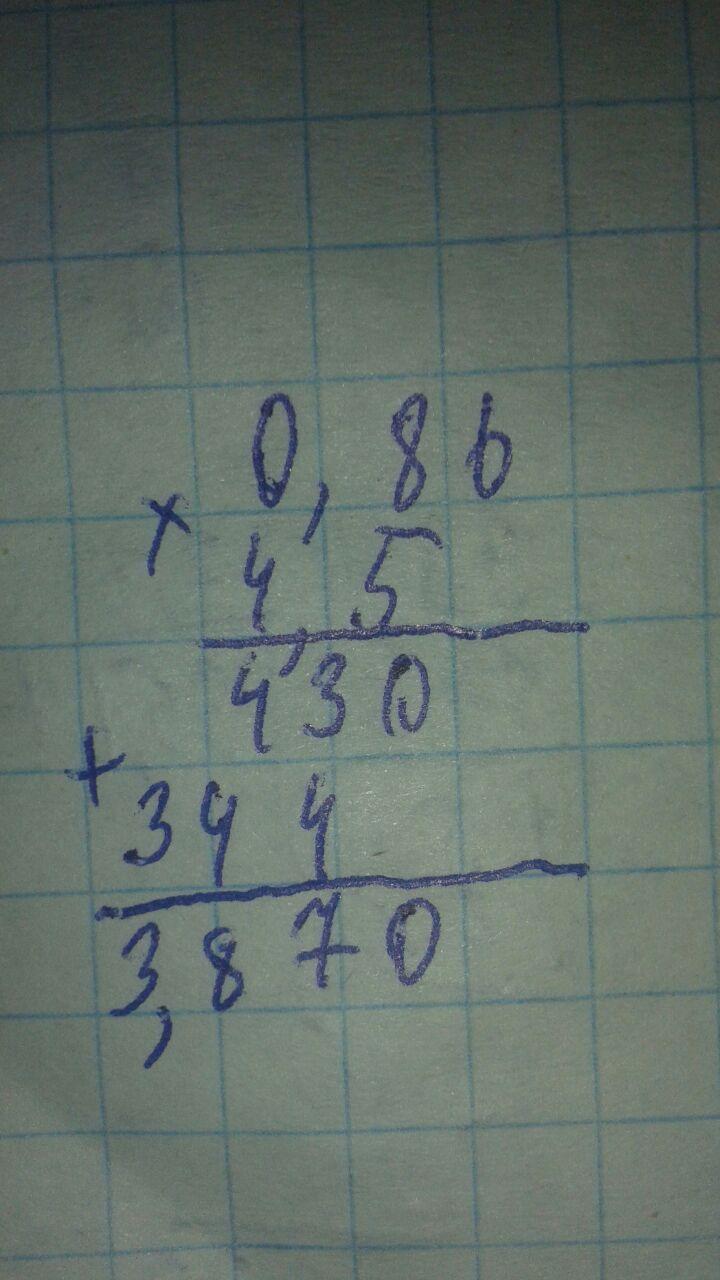 × 0,86
4,5
430
+ 344
3,870